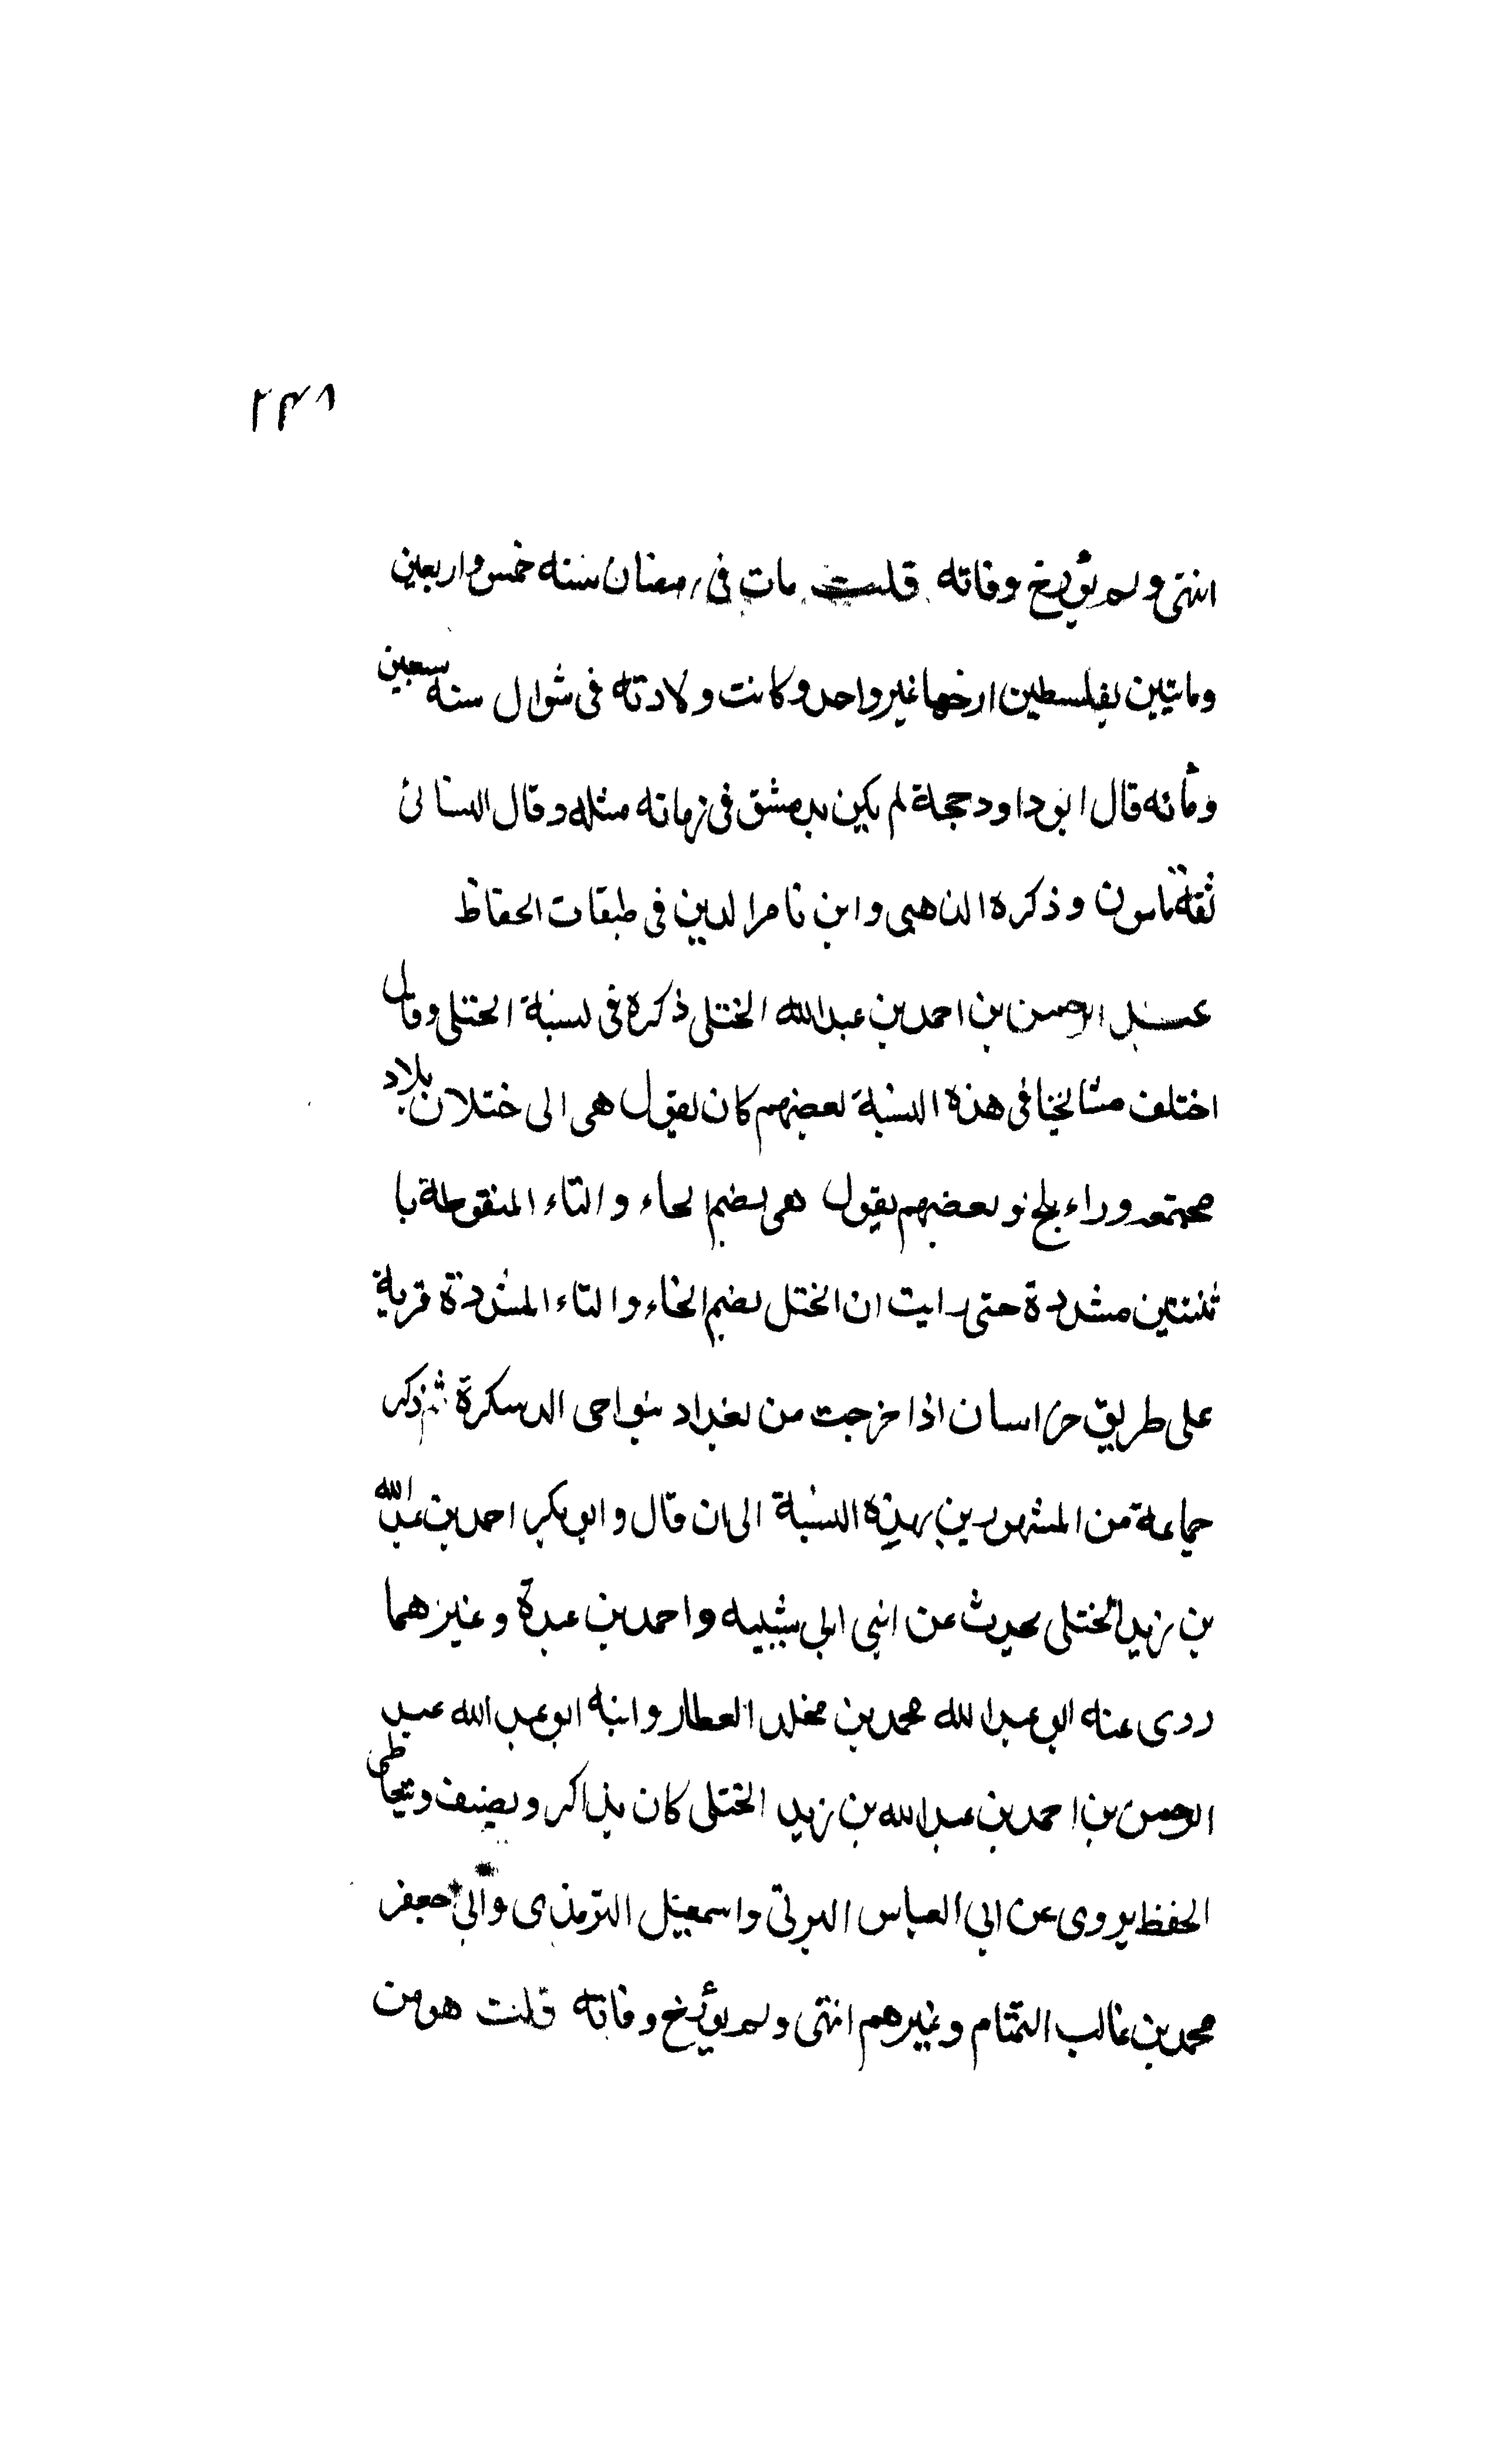 ٢٤٨
انتهى ولم يؤرخ وفاته قلت مات فى رمضان سنه خمس واربعين
وماتيين بفلسطين ارخها غير واحد وكانت ولادته فى شوال سنه سبعين
ومأته قال ابو داود حجة لم يكن بدمشق فى زمانه مثله وقال النسائى
ثقة مامون وذكره الذهبى وابن ناصر الدين فى طبقات الحفاظ
عبد الرحمن بن احمد بن عبد الله الختلى ذكره فى نسبة الختلى وقال
اختلف مشايخنا فى هذه النسبة بعضهم كان يقول هى الى ختلان بلاد
مجتمعه وراء بلخ و بعضهم يقول هى بضم الحاء والتاء المنقوطة با
ثنتين مشددة حتى رايت ان الختل بضم الخاء والتاء المشددة قرية
على طريق خراسان اذا خرجت من بغداد بنواحى الدسكرة ثم ذكر
جماعة من المشهورين بهذه النسبة الى ان قال وابو بكر احمد بن عبد الله
بن زيد الختلى يحدث عن ابنى ابى شيبه واحمد بن عبدة وغيرهما
روى عنه ابو عبد الله محمد بن مخلد العطار وابنه ابو عبد الله عبد
الرحمن بن احمد بن عبد الله بن زيد الختلى كان يذاكر ويصنف ويتعاطى
الحفظ يروى عن ابى العباس البرتى واسمعيل الترمذى وابى جعفر
محمد بن غالب التمتام وغيرهم انتهى ولم يؤرخ وفاته قلت هو من